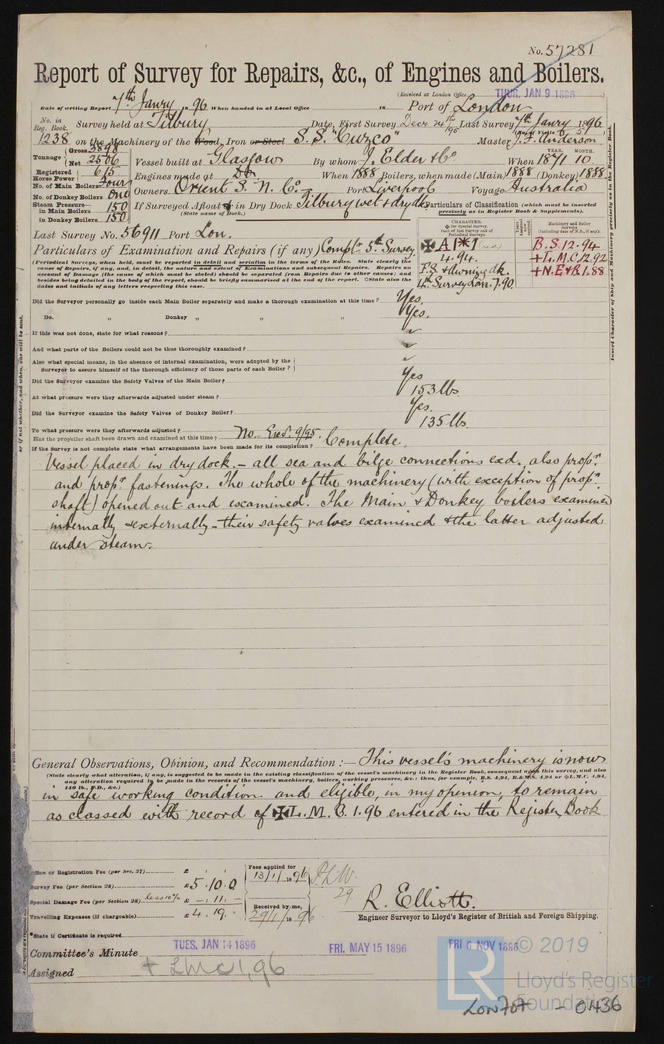 No. 57281
Report of Survey for Repairs, &c., of Engines and Boilers.
(Received at London Office THUR. JAN 9 1896
Date of writing Report 7th Janry 1896 When handed in at Local Office 18 Port of London
No. in Reg. Book. Survey held at Tilbury Date, First Survey Decr 24th/95 Last Survey 7th Janry 1896
1238 on the Machinery of the Wood, Iron or Steel S.S. "Cuzco" Master J. F. Anderson
Tonnage Gross 3898 Net 2506 Vessel built at Glasgow By whom J. Elder & Co When 1871 10
YEAR. MONTH.
Registered Horse Power 615 Engines made at Do When 1888 Boilers, when made (Main) 1888 (Donkey) 1888
No. of Main Boilers Four Owners Orient S. N. Co Port Liverpool Voyage Australia
No. of Donkey Boilers One
Steam Pressure— in Main Boilers 150 If Surveyed Afloat & in Dry Dock Tilbury wet & dry dk
in Donkey Boilers 150 (State name of Dock.)
Particulars of Classification (which must be inserted precisely as in Register Book & Supplements).
Last Survey No. 56911 Port Lon.
Particulars of Examination and Repairs (if any) Compltn 5th Survey.
✠ A1
4.94.
4th Survey Lon. 7.90
B.S. 12.94
+L.M.C. 12.92
+N.E&B. 1.88
(Periodical Surveys, when held, must be reported in detail and seriatim in the terms of the Rules. State clearly the
cause of Repairs, if any, and, in detail, the nature and extent of Examinations and subsequent Repairs. Repairs on
account of Damage (the cause of which must be stated) should be separated from Repairs due to other causes; and
besides being detailed in the body of the report, should be briefly summarised at the end of the report. State also the
dates and initials of any letters respecting this case.
Did the Surveyor personally go inside each Main Boiler separately and make a thorough examination at this time? Yes.
Do. „ Donkey „ „ „ Yes.
If this was not done, state for what reasons?
And what parts of the Boilers could not be thus thoroughly examined?
Also what special means, in the absence of internal examination, were adopted by the
Surveyor to assure himself of the thorough efficiency of those parts of each Boiler?
Did the Surveyor examine the Safety Valves of the Main Boiler? Yes
At what pressure were they afterwards adjusted under steam? 153 lbs
Did the Surveyor examine the Safety Valves of Donkey Boiler? Yes.
To what pressure were they afterwards adjusted? 135 lbs.
Has the propeller shaft been drawn and examined at this time? No. Exd. 9/95.
If the Survey is not complete state what arrangements have been made for its completion? Complete.
Vessel placed in dry dock. – all sea and bilge connections exd. also propr
and propr fastenings. The whole of the machinery (with exception of propr
shaft) opened out and examined. The Main & Donkey boilers examined
internally & externally – their safety valves examined & the latter adjusted
under steam.
General Observations, Opinion, and Recommendation :— This vessel's machinery is now
(State clearly what alteration, if any, is suggested to be made in the existing classification of the vessel's machinery in the Register Book, consequent upon this survey, and also
any alteration required to be made in the records of the vessel's machinery, boilers, working pressures, &c.: thus, for example, B.S. 4,94, B.&M.S. 4,94 or ✠L.M.C. 4,94,
140 lb., F.D., &c.)
in safe working condition and eligible, in my opinion, to remain
as classed with record of ✠L.M.C. 1.96 entered in the Register Book
Office or Registration Fee (per Sec. 27) £ : :
Survey Fee (per Section 28) £ 5 . 10 . 0
Special Damage Fee (per Section 28) less 10% £ – . 11 . –
Travelling Expenses (if chargeable) £ 4 . 19 . –
Fees applied for 13/1/1896
Received by me, 29/1/1896
29
R. Elliott.
Engineer Surveyor to Lloyd's Register of British and Foreign Shipping.
*State if Certificate is required
Committee's Minute TUES. JAN 14 1896 FRI. MAY 15 1896 FRI 6 NOV 1896
Assigned + LMC 1,96
LR
© 2019
Lloyd's Register
Foundation
LON707 – 0436